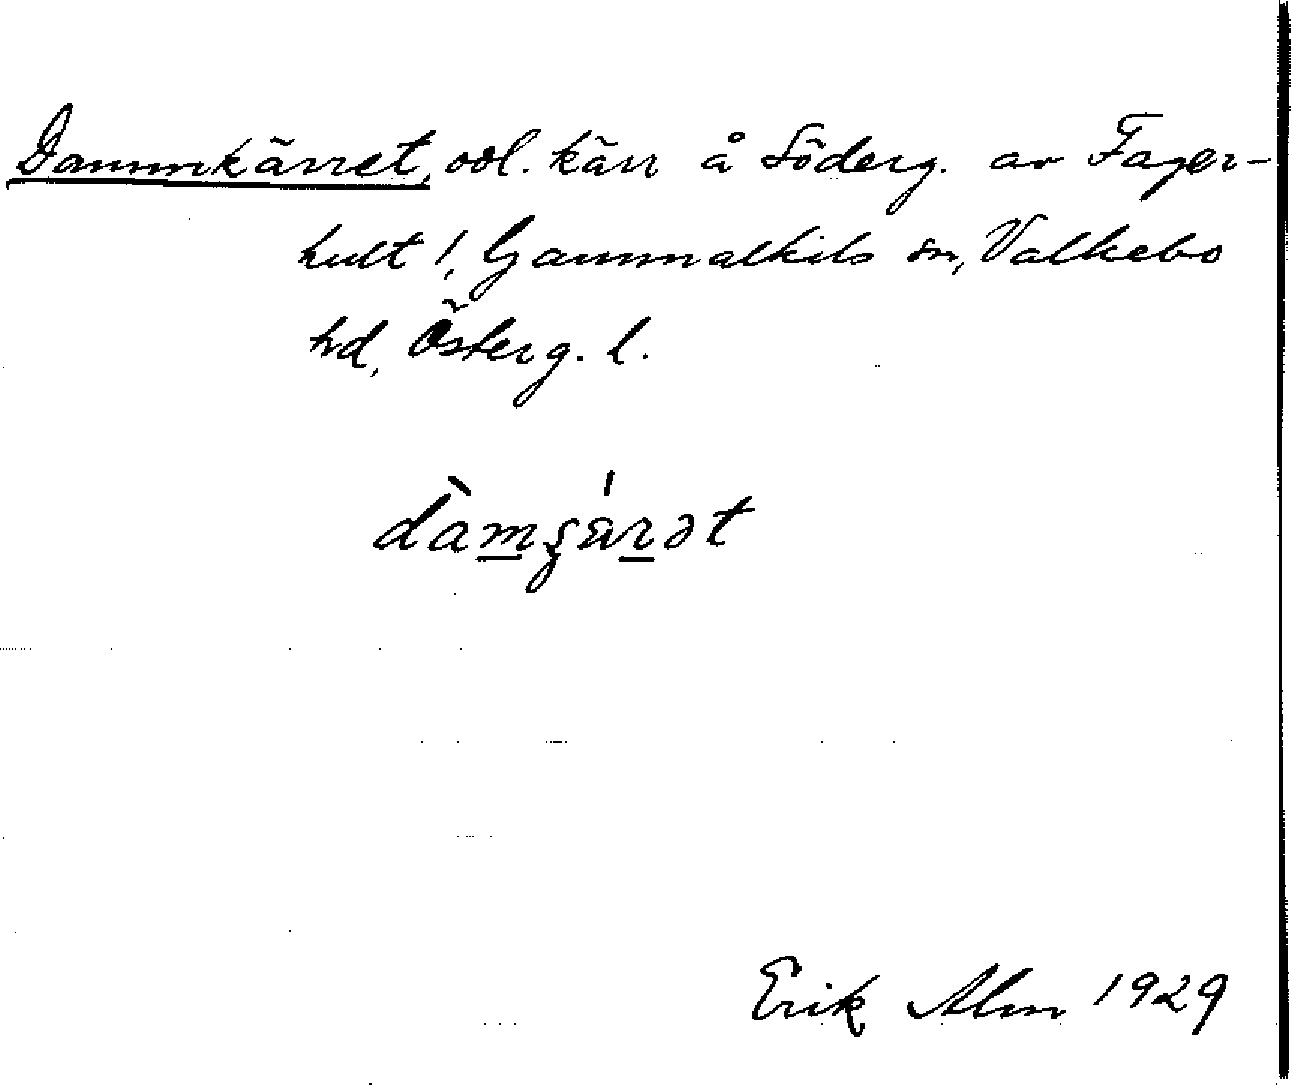 Dammkärret, odl. kärr å Söderg. av Fager-
hult /, Gammalkils sn, Valkebo
hd, Österg. l.
Erik Alm 1929